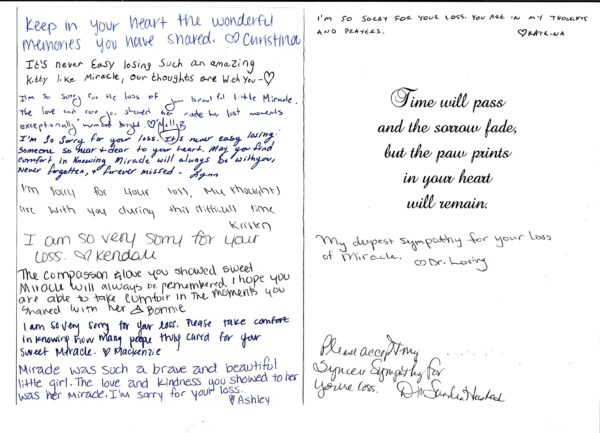 Keep in your heart the wonderful
memories you have shared. ♡Christina
It's never Easy losing Such an amazing
Kitty like Miracle, our thoughts are With You-♡
I'm so sorry for the loss of your beautiful little Miracle.
The love and care you showed her made her last moments
exceptionally bright ♡
I'm so sorry for your loss. It's never easy losing
Someone so near + dear to your heart. May you find
comfort in knowing Miracle will always be with you,
never forgotten, + forever missed - Lynn
I'm sorry for your loss, My thoughts
are with you during this difficult time
Kristen
I am so very sorry for your
loss. ♡Kendall
The compassion & love you showed sweet
Miracle will always be remembered. I hope you
are able to take comfort in the moments you
shared with her Bonnie
I am so very sorry for your loss. Please take comfort
in knowing how many people truly cared for your
sweet Miracle. ♡ Mackenzie
Miracle was such a brave and beautiful
little girl. The love and kindness you showed to her
was her Miracle. I'm sorry for your loss.
♡Ashley
I'm so sorry for your loss. You are in my thoughts
and prayers. ♡Katrina
Time will pass
and the sorrow fade,
but the paw prints
in your heart
will remain.
My deepest sympathy for your loss
of Miracle. ♡Dr. Loring
Please accept my
Sympathy for
loss. Dr Sandra